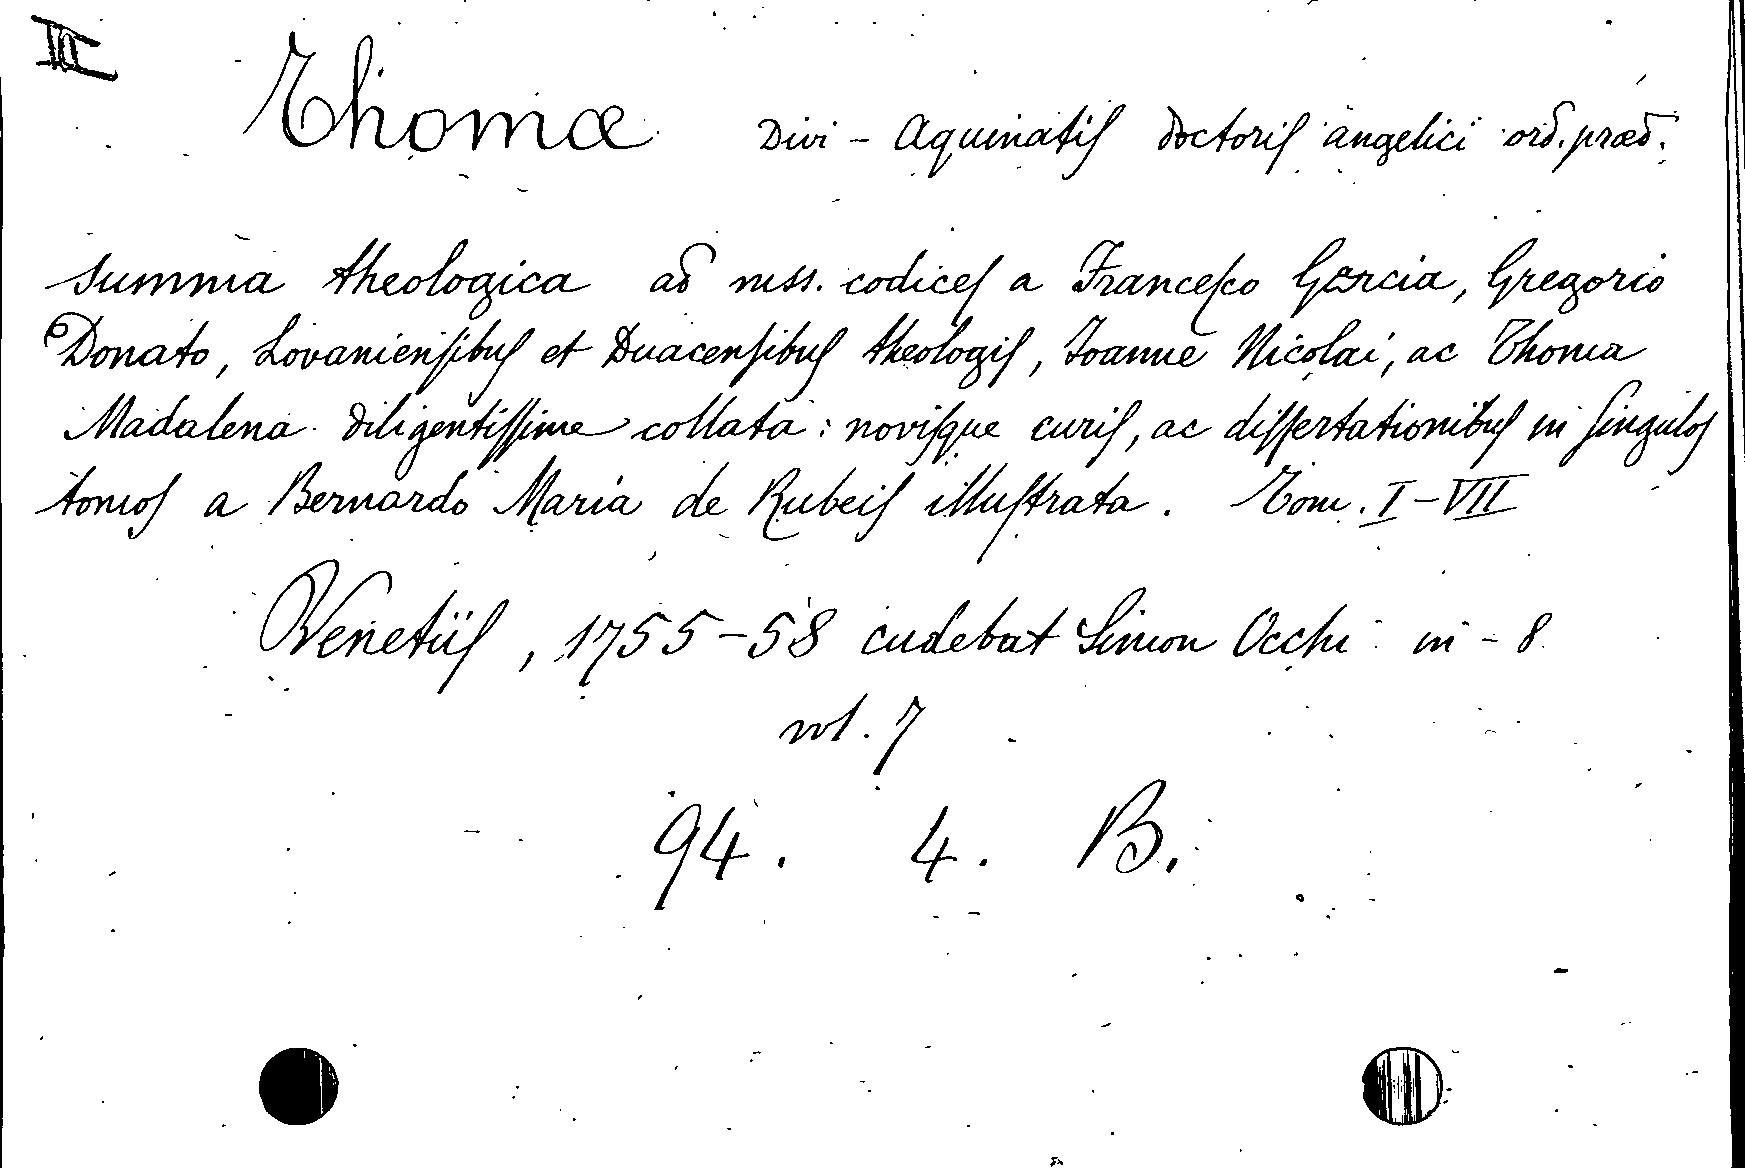 II
Thomæ Divi - Aquinatis doctoris angelici ord. præd.
Summa theologica ad mss. codices a Francesco Garcia, Gregorio
Donato, Lovaniensibus et Duacensibus theologis, Joanne Nicolai, ac Thoma
Madalena diligentissime collata: novisque curis, ac dissertationibus in singulos
tomos a Bernardo Maria de Rubeis illustrata. Tom. I-VII
Venetiis, 1755-58 cudebat Simon Occhi in - 8
vol. 7
94. 4. B.